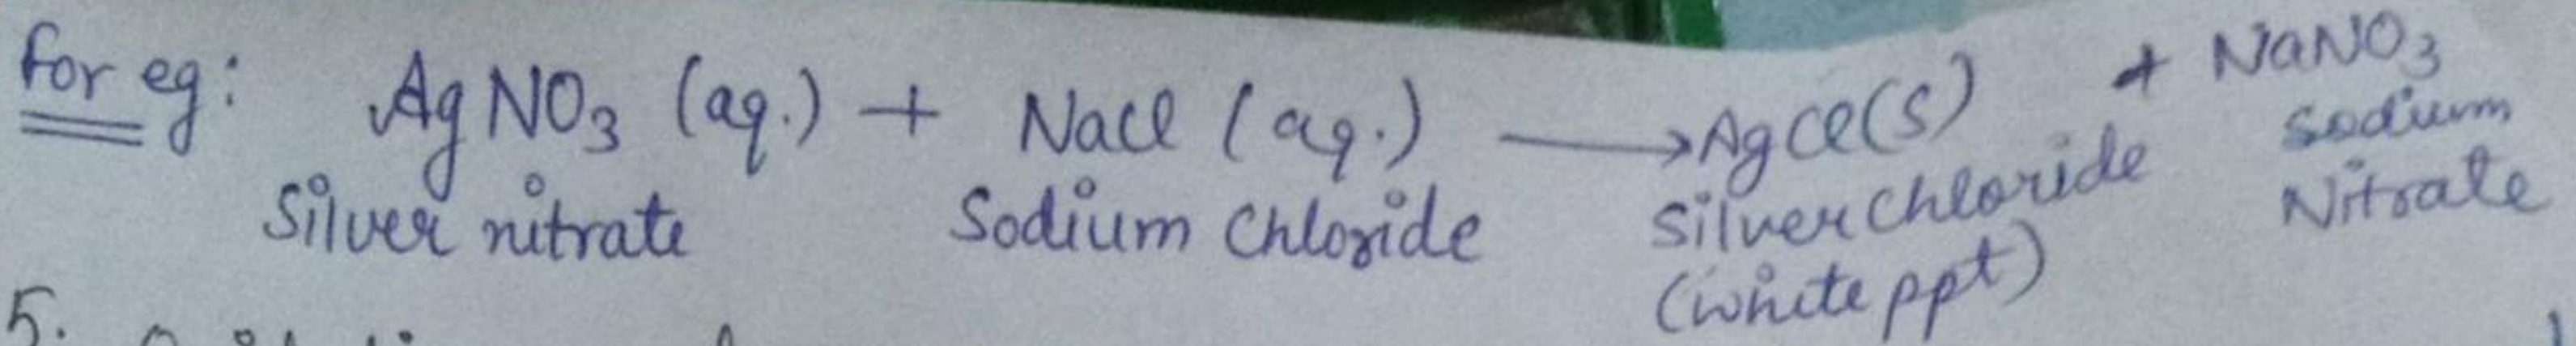 for eg: AgNO3 (aq.) + Nacl (aq.) ⟶ AgCl(S) + NaNO3
Silver nitrate Sodium Chloride Silver chloride Sodium Nitrate
(white ppt)
5.